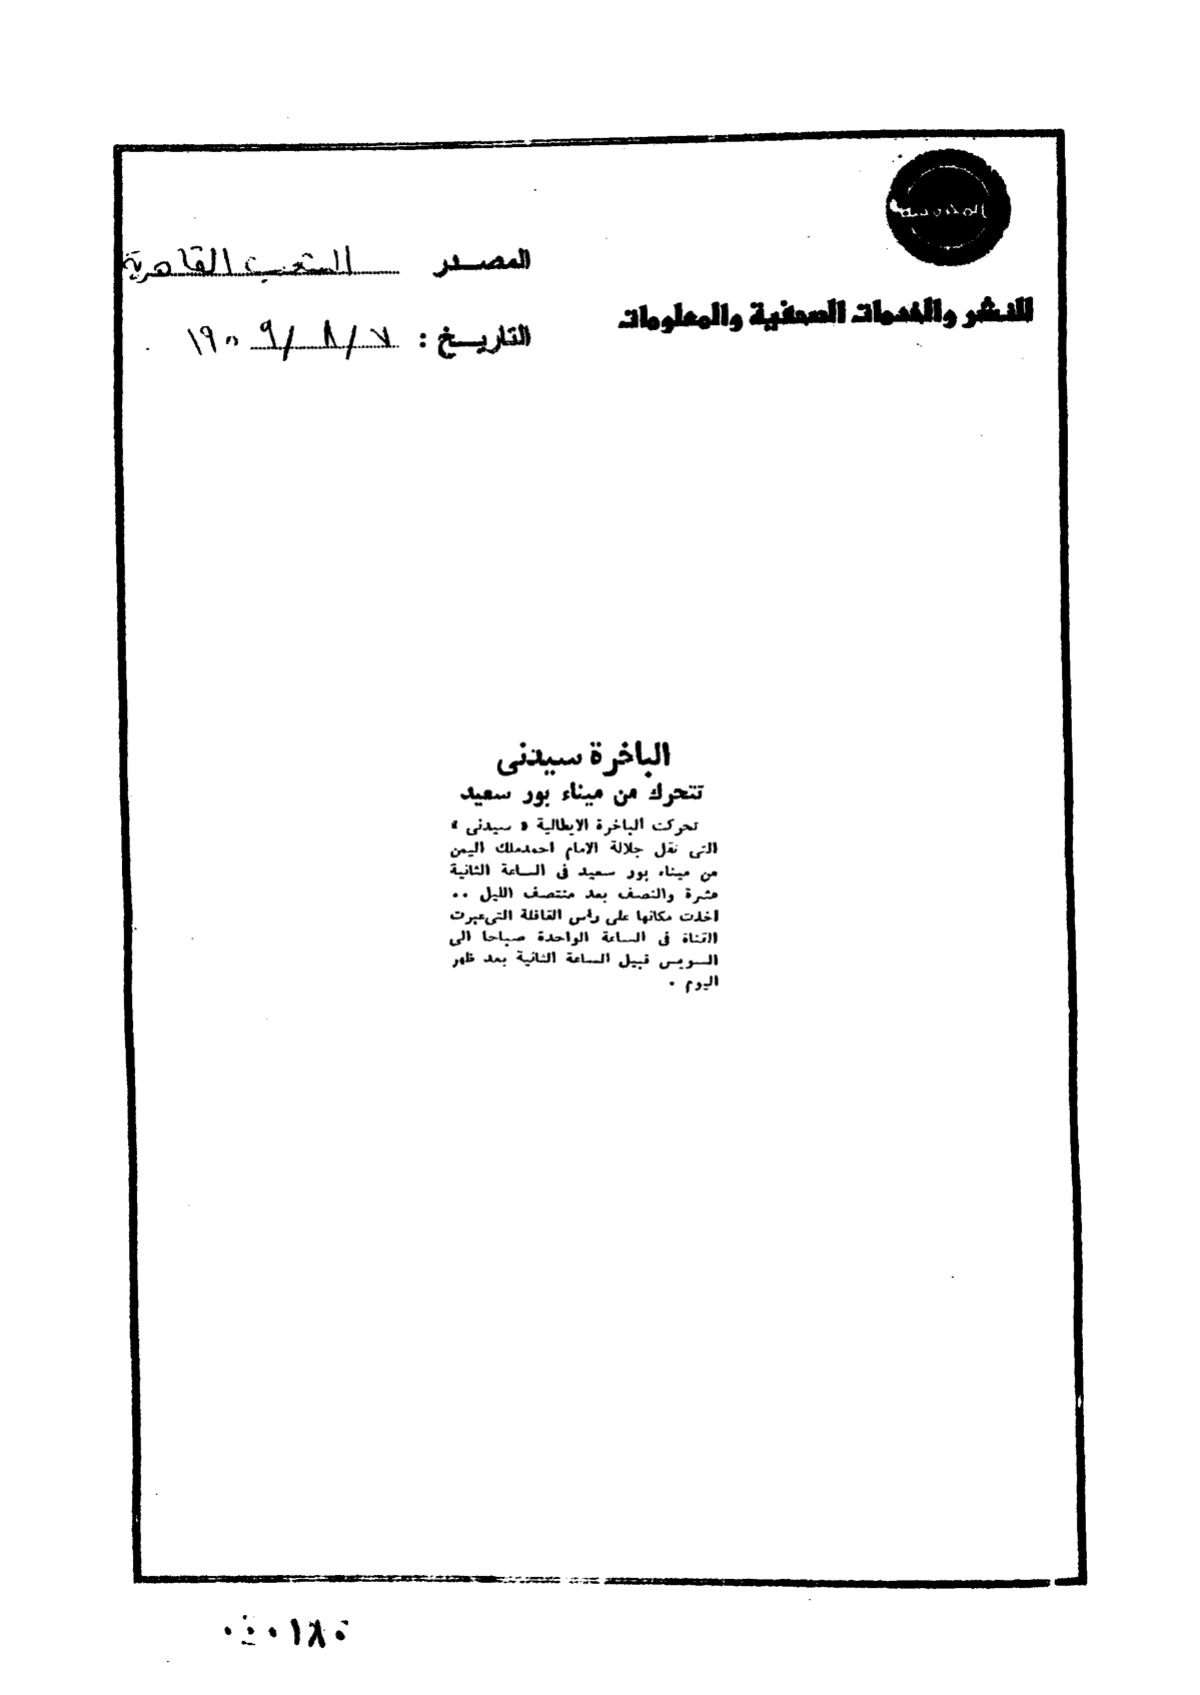 المصدر الشعب القاهرية
للنشر والخدمات الصحفية والمعلومات
التاريخ : ٧ / ٨ / ١٩٥٩
الباخرة سيدنى
تتحرك من ميناء بور سعيد
تحركت الباخرة الايطالية « سيدنى »
التى تقل جلالة الامام احمدملك اليمن
من ميناء بور سعيد فى الساعة الثانية
عشرة والنصف بعد منتصف الليل ..
اخذت مكانها على رأس القافلة التىعبرت
القناة فى الساعة الواحدة صباحا الى
السويس قبيل الساعة الثانية بعد ظهر
اليوم .